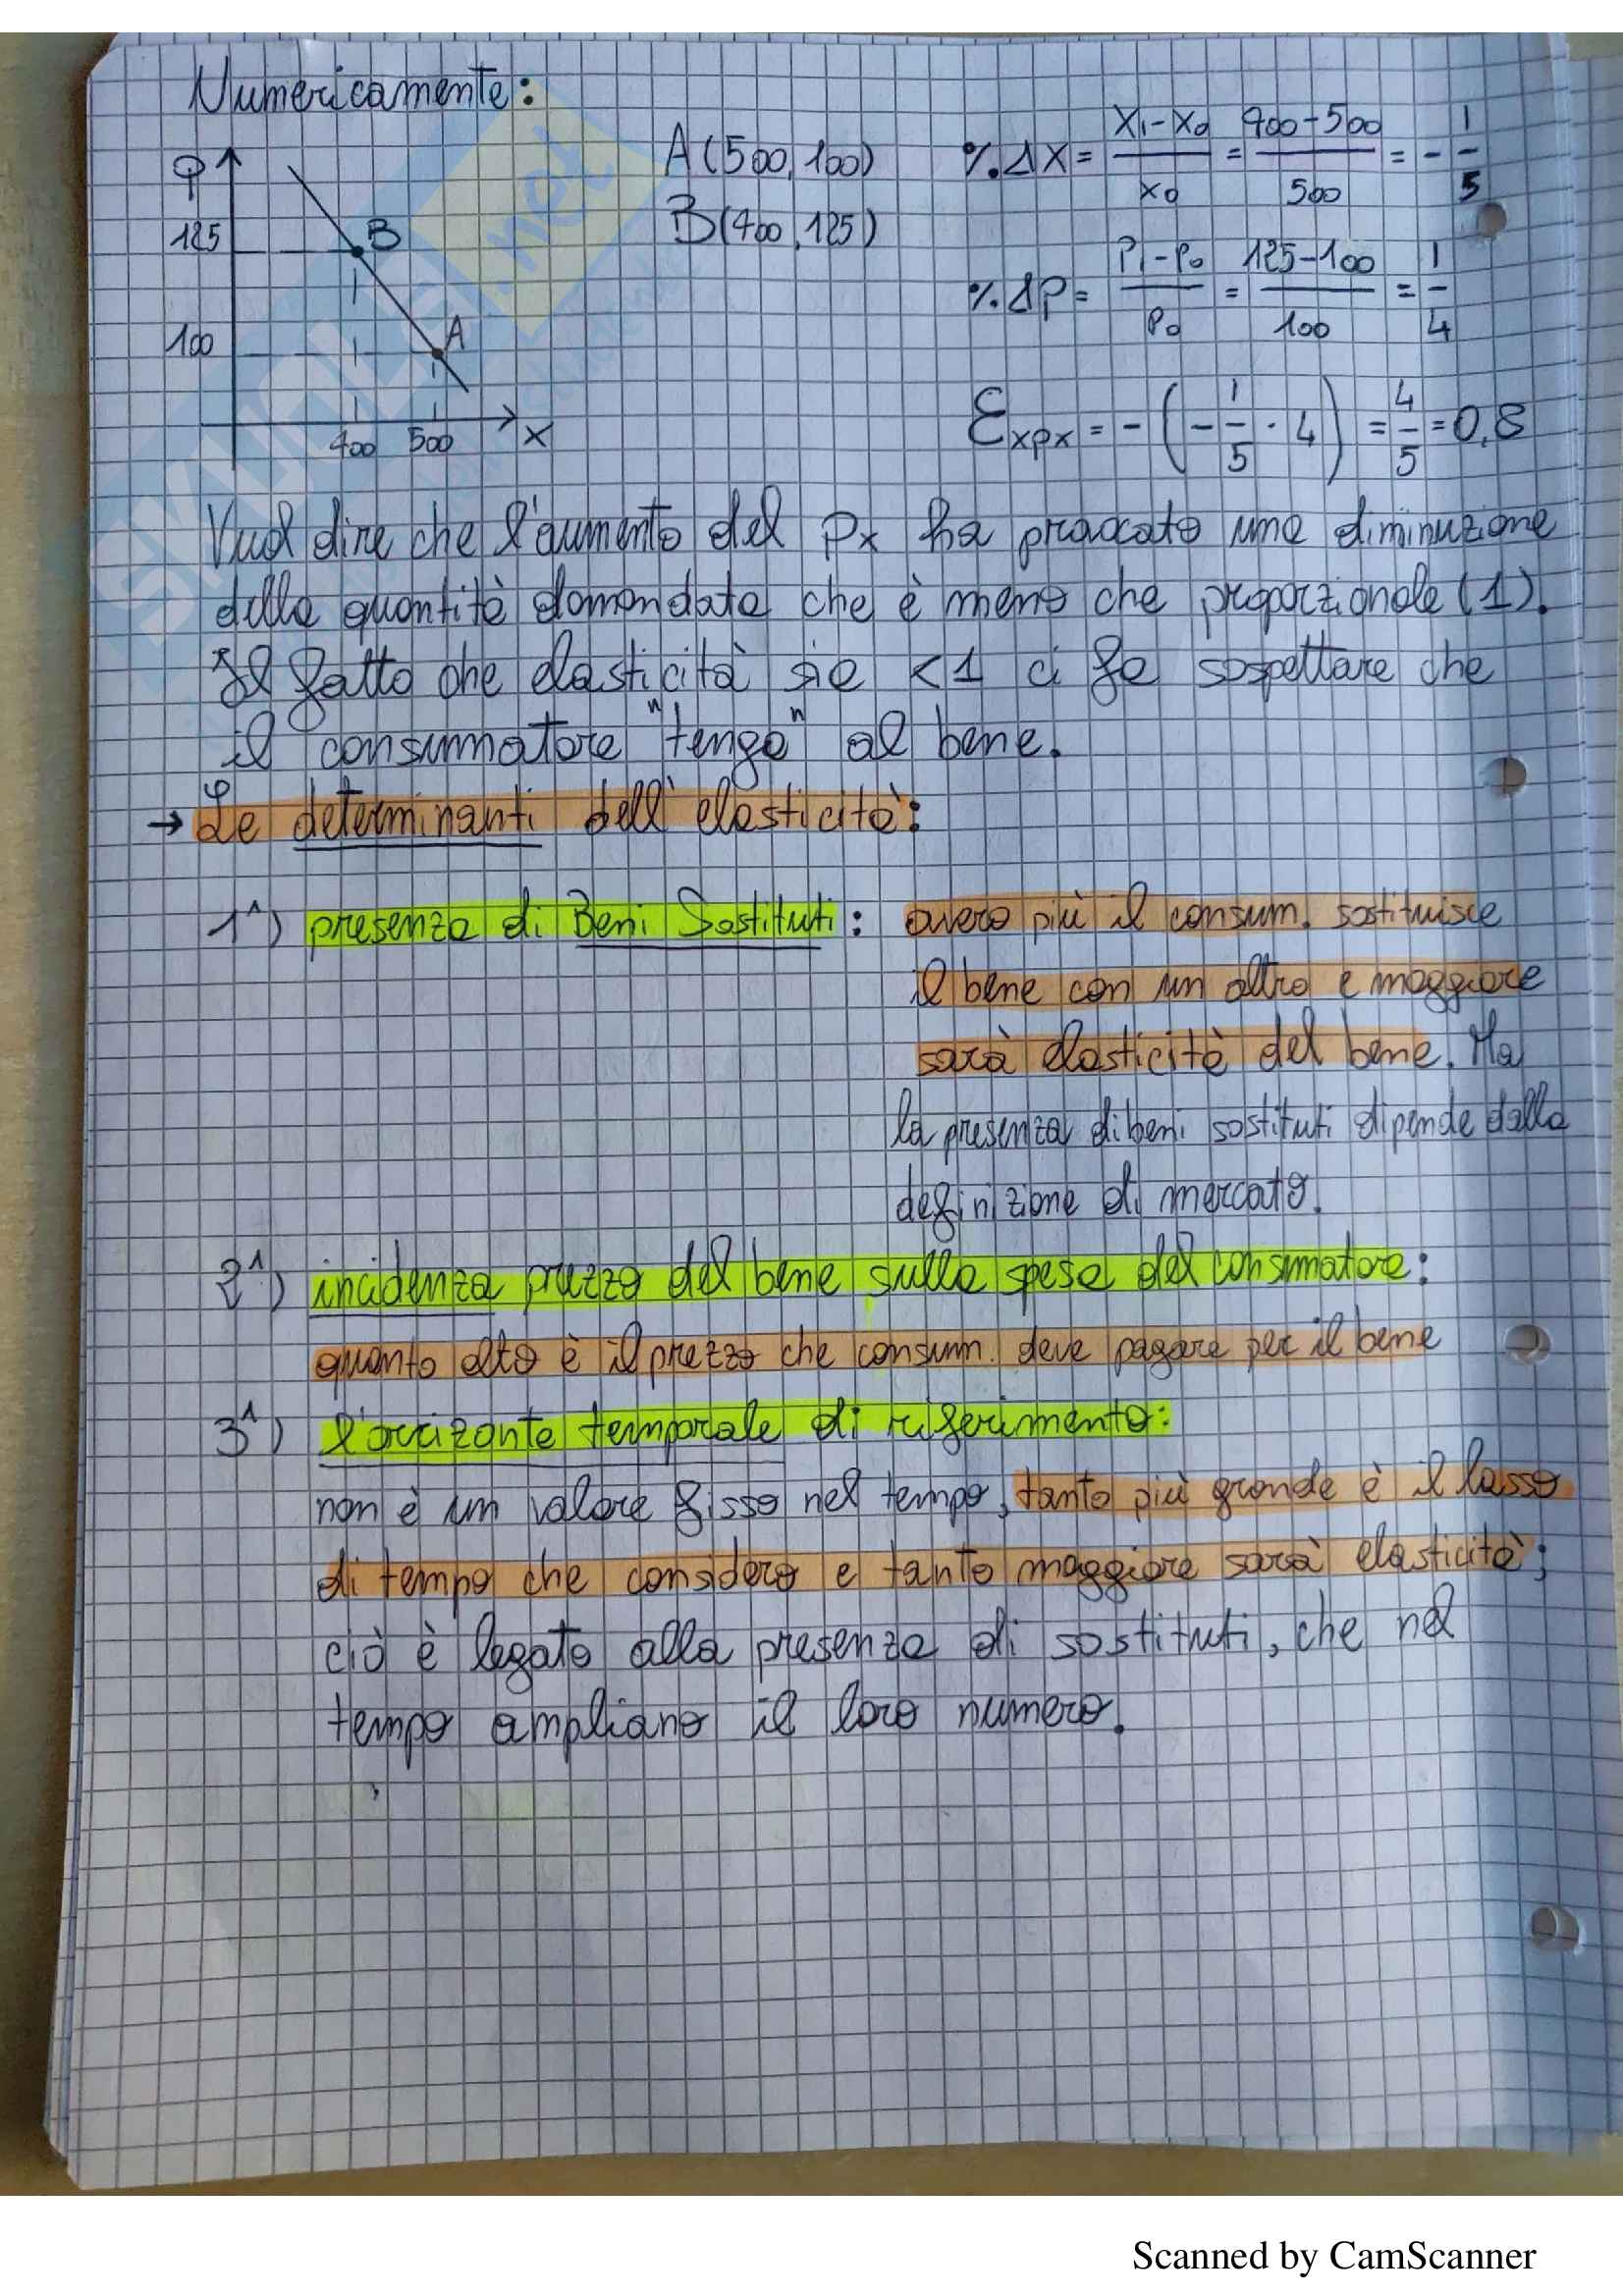 Numericamente:
P
125
100
B
A
400 500 X
A(500,100)
B(400,125)
%ΔX = X1-X0 / X0 = 400-500 / 500 = - 1/5
%ΔP = P1-P0 / P0 = 125-100 / 100 = 1/4
Ɛxpx = - (- 1/5 · 4) = 4/5 = 0,8
Vuol dire che l'aumento del Px ha provocato una diminuzione
della quantità domandata che è meno che proporzionale (1).
Il fatto che elasticità sia <1 ci fa sospettare che
il consumatore "tenga" al bene.
→ Le determinanti dell'elasticità:
1^) presenza di Beni Sostituti: ovvero più il consum. sostituisce
il bene con un altro e maggiore
sarà elasticità del bene. Ma
la presenza di beni sostituti dipende dalla
definizione di mercato.
2^) incidenza prezzo del bene sulla spesa del consumatore:
quanto alto è il prezzo che consum. deve pagare per il bene
3^) l'orizzonte temporale di riferimento:
non è un valore fisso nel tempo, tanto più grande è il lasso
di tempo che considero e tanto maggiore sarà elasticità;
ciò è legato alla presenza di sostituti, che nel
tempo ampliano il loro numero.
SKUOLA.net
Scanned by CamScanner